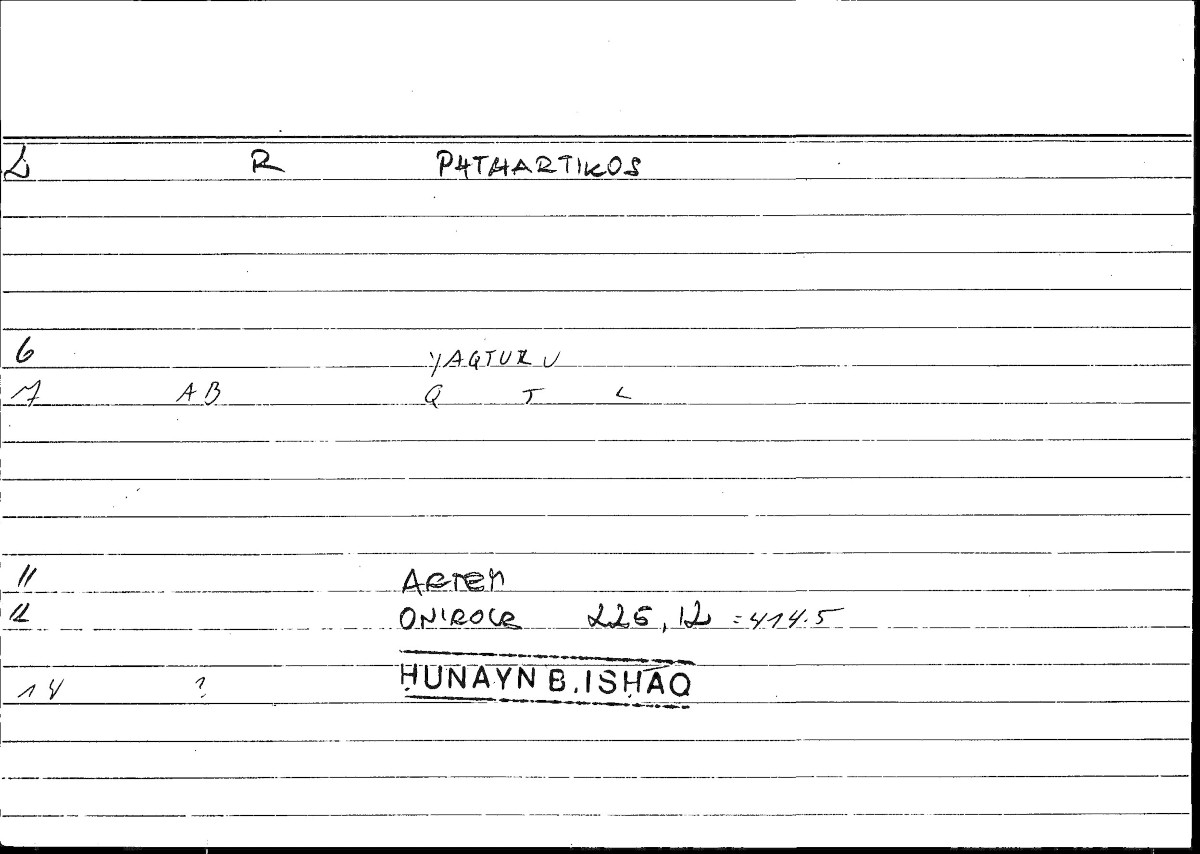 2 R PHTHARTIKOS
6 YAQTULU
7 AB Q T L
11 ARTEM
12 ONIROCR 226,12 =414.5
14 ? ḤUNAYN B. ISḤĀQ